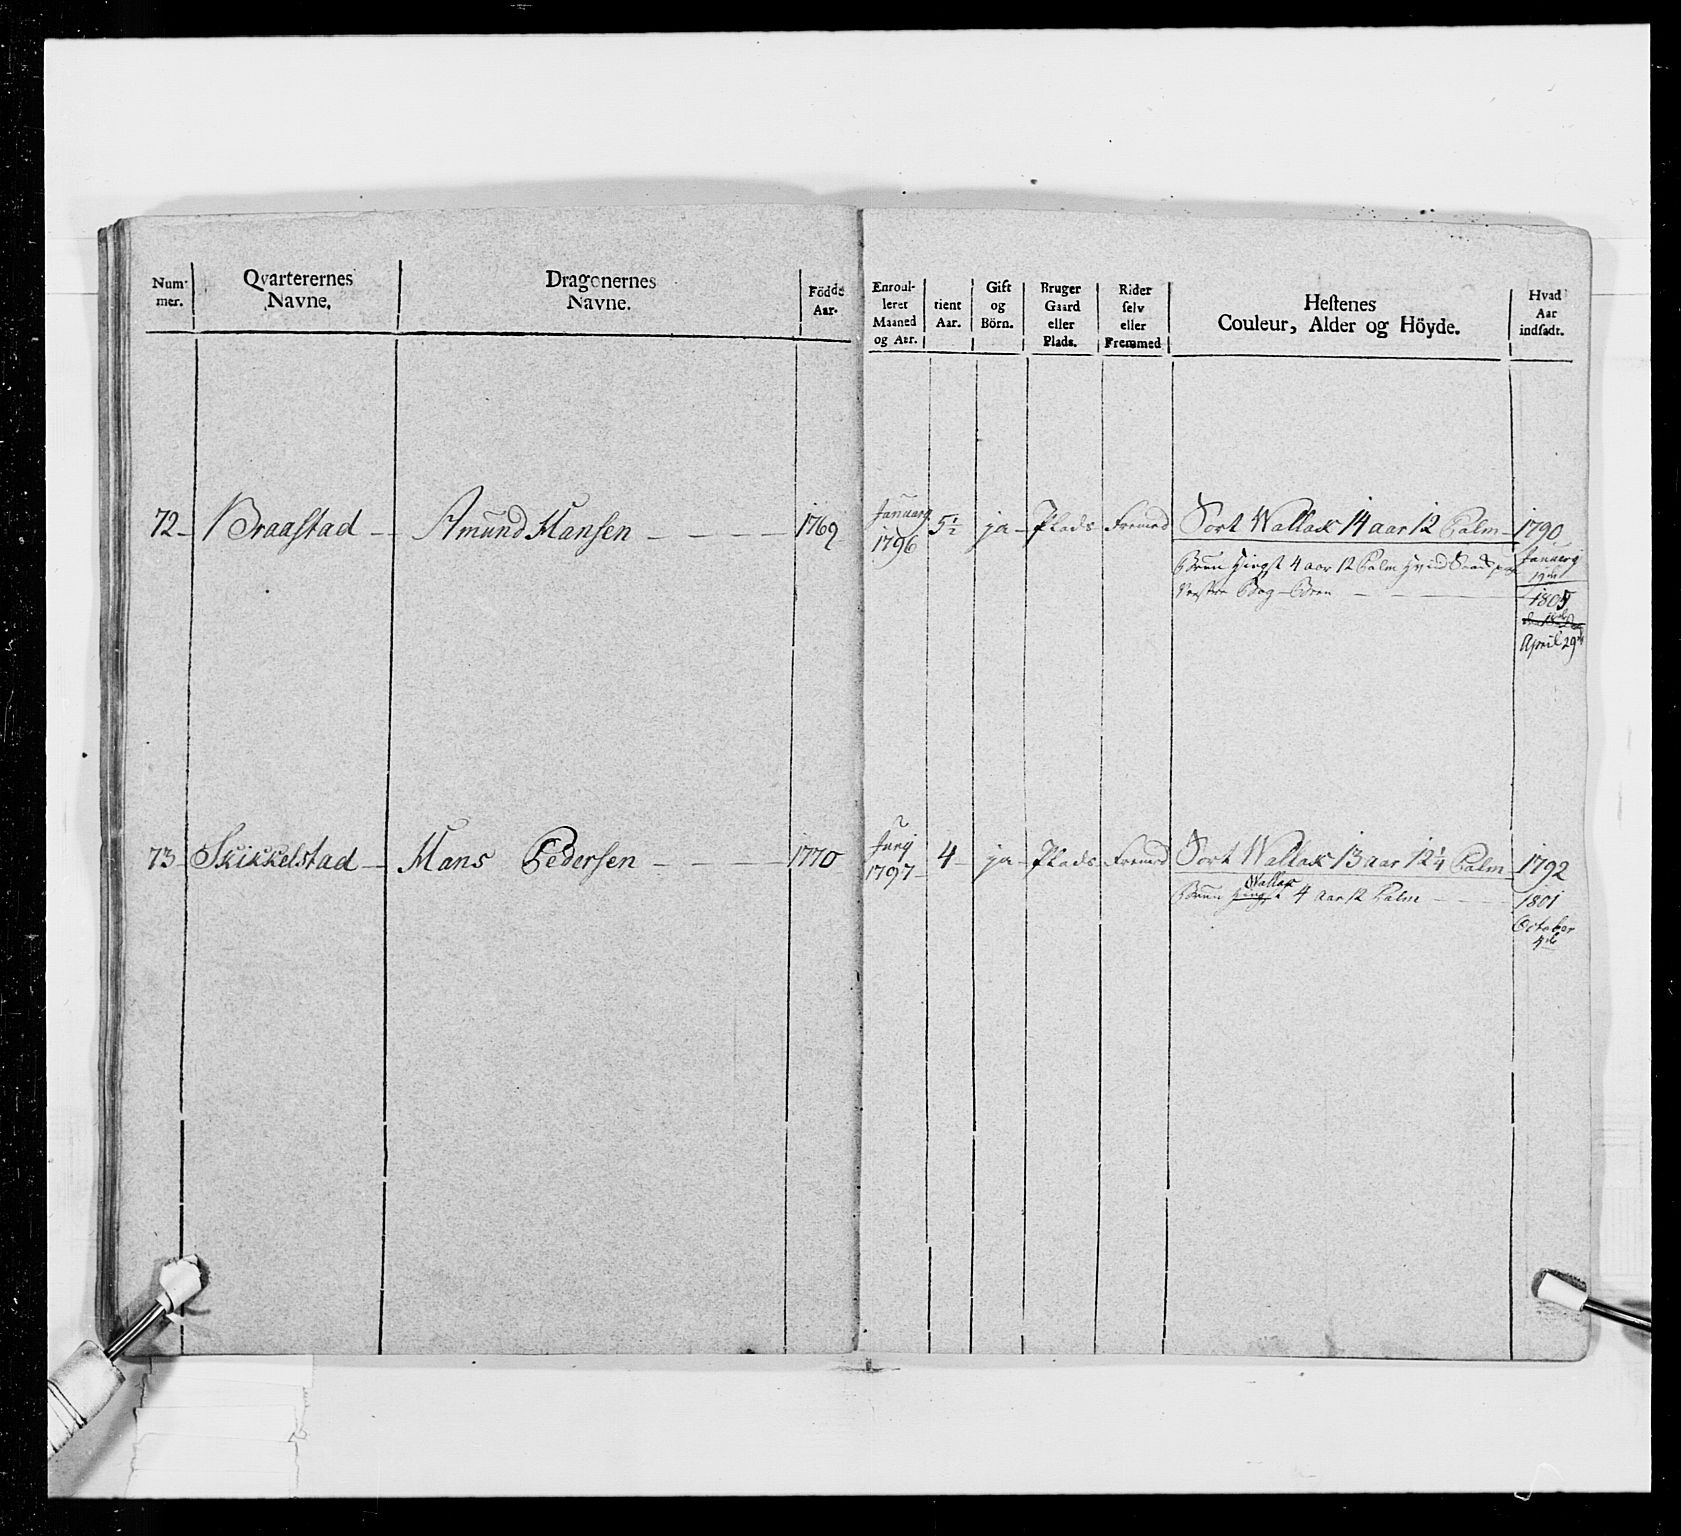 Num-
mer.
Qvarterernes
Navne.
Dragonernes
Navne.
Födde
Aar.
Enroul-
leret
Maaned
og Aar.
tient
Aar.
Gift
og
Börn.
Bruger
Gaard
eller
Plads.
Rider
selv
eller
Fremmed
Hestenes
Couleur, Alder og Höyde.
Hvad
Aar
indsadt.
72 Braastad Amund Hansen 1769 Januarij 1796 5½ ja Plads Fremed Sort Wallak 14 aar 12 Palm 1790
Bruun Hingst 4 aar 12 Palm Hvid
Venstre Bag Been
Januarij
19de
1805
April 29de
73 Skikkelstad Hans Pedersen 1770 Junij 1797 4 ja Plads Fremed Sort Wallak 13 aar 12¼ Palm 1792
Bruun Hingst Wallak 4 aar 12 Palm 1801
October
4de